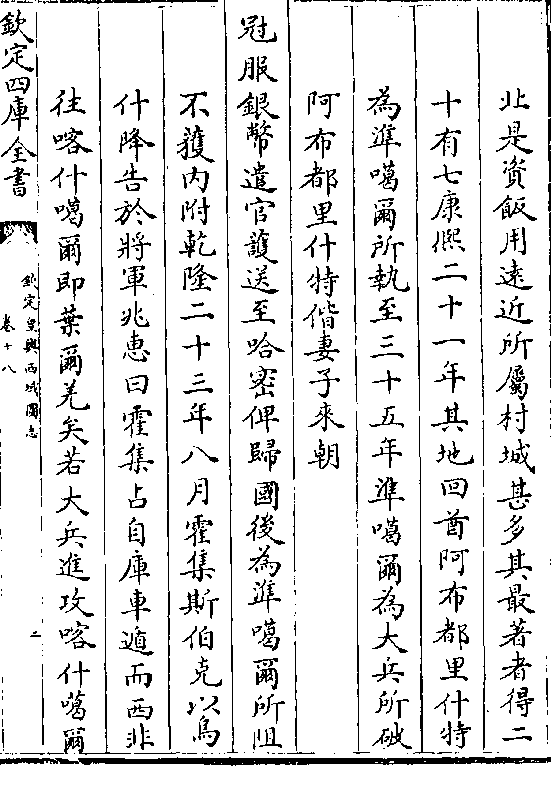 北是資飯用遠近所屬村城甚多其最著者得二
十有七康熙二十一年其地回酋阿布都里什特
為準噶爾所執至三十五年準噶爾為大兵所破
阿布都里什特偕妻子來朝
冠服銀幣遣官護送至哈密俾歸國後為準噶爾所阻
不獲內附乾隆二十三年八月霍集斯伯克以烏
什降告於將軍兆惠曰霍集占自庫車遁而西非
往喀什噶爾即葉爾羌矣若大兵進攻喀什噶爾
欽定四庫全書
欽定皇輿西域圖志
卷十八
二